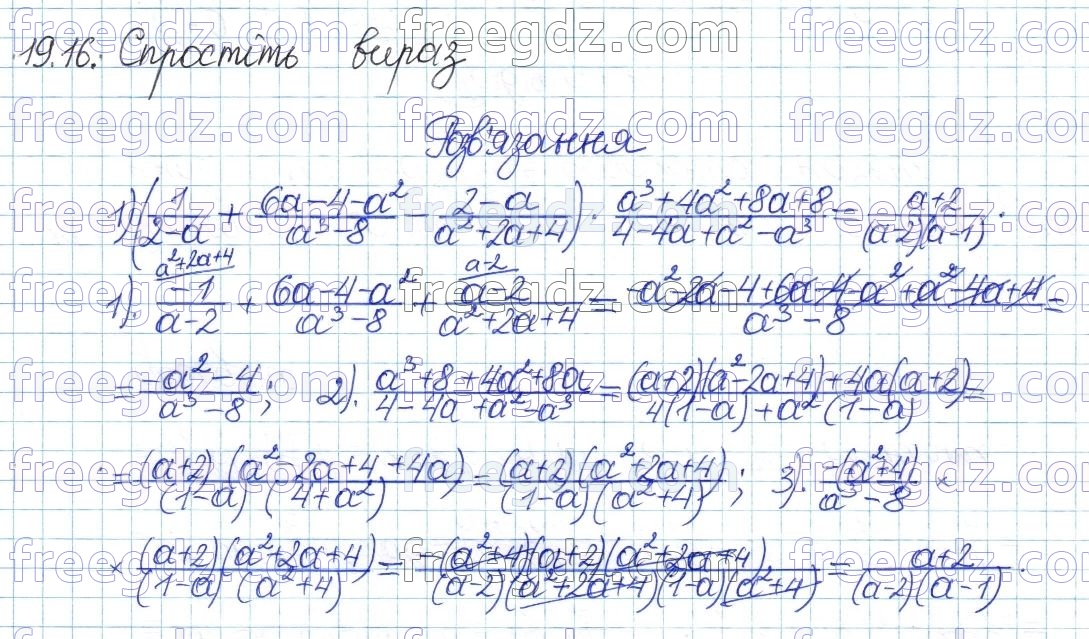 19.16. Спростіть вираз
Розв'язання
1) (1/(2-a) + (6a-4-a²)/(a³-8) - (2-a)/(a²+2a+4)) · (a³+4a²+8a+8)/(4-4a+a²-a³) = (a+2)/((a-2)(a-1)).
1). a²+2a+4 -1/(a-2) + (6a-4-a²)/(a³-8) + a-2 (a-2)/(a²+2a+4) = (-a²-2a-4+6a-4-a²+a²-4a+4)/(a³-8) =
= (-a²-4)/(a³-8); 2). (a³+8+4a²+8a)/(4-4a+a²-a³) = ((a+2)(a²-2a+4)+4a(a+2))/(4(1-a)+a²(1-a)) =
= ((a+2)(a²-2a+4+4a))/((1-a)(4+a²)) = ((a+2)(a²+2a+4))/((1-a)(a²+4)); 3). -(a²+4)/(a³-8) ×
× ((a+2)(a²+2a+4))/((1-a)(a²+4)) = (-(a²+4)(a+2)(a²+2a+4))/((a-2)(a²+2a+4)(1-a)(a²+4)) = (a+2)/((a-2)(a-1)).
freegdz.com